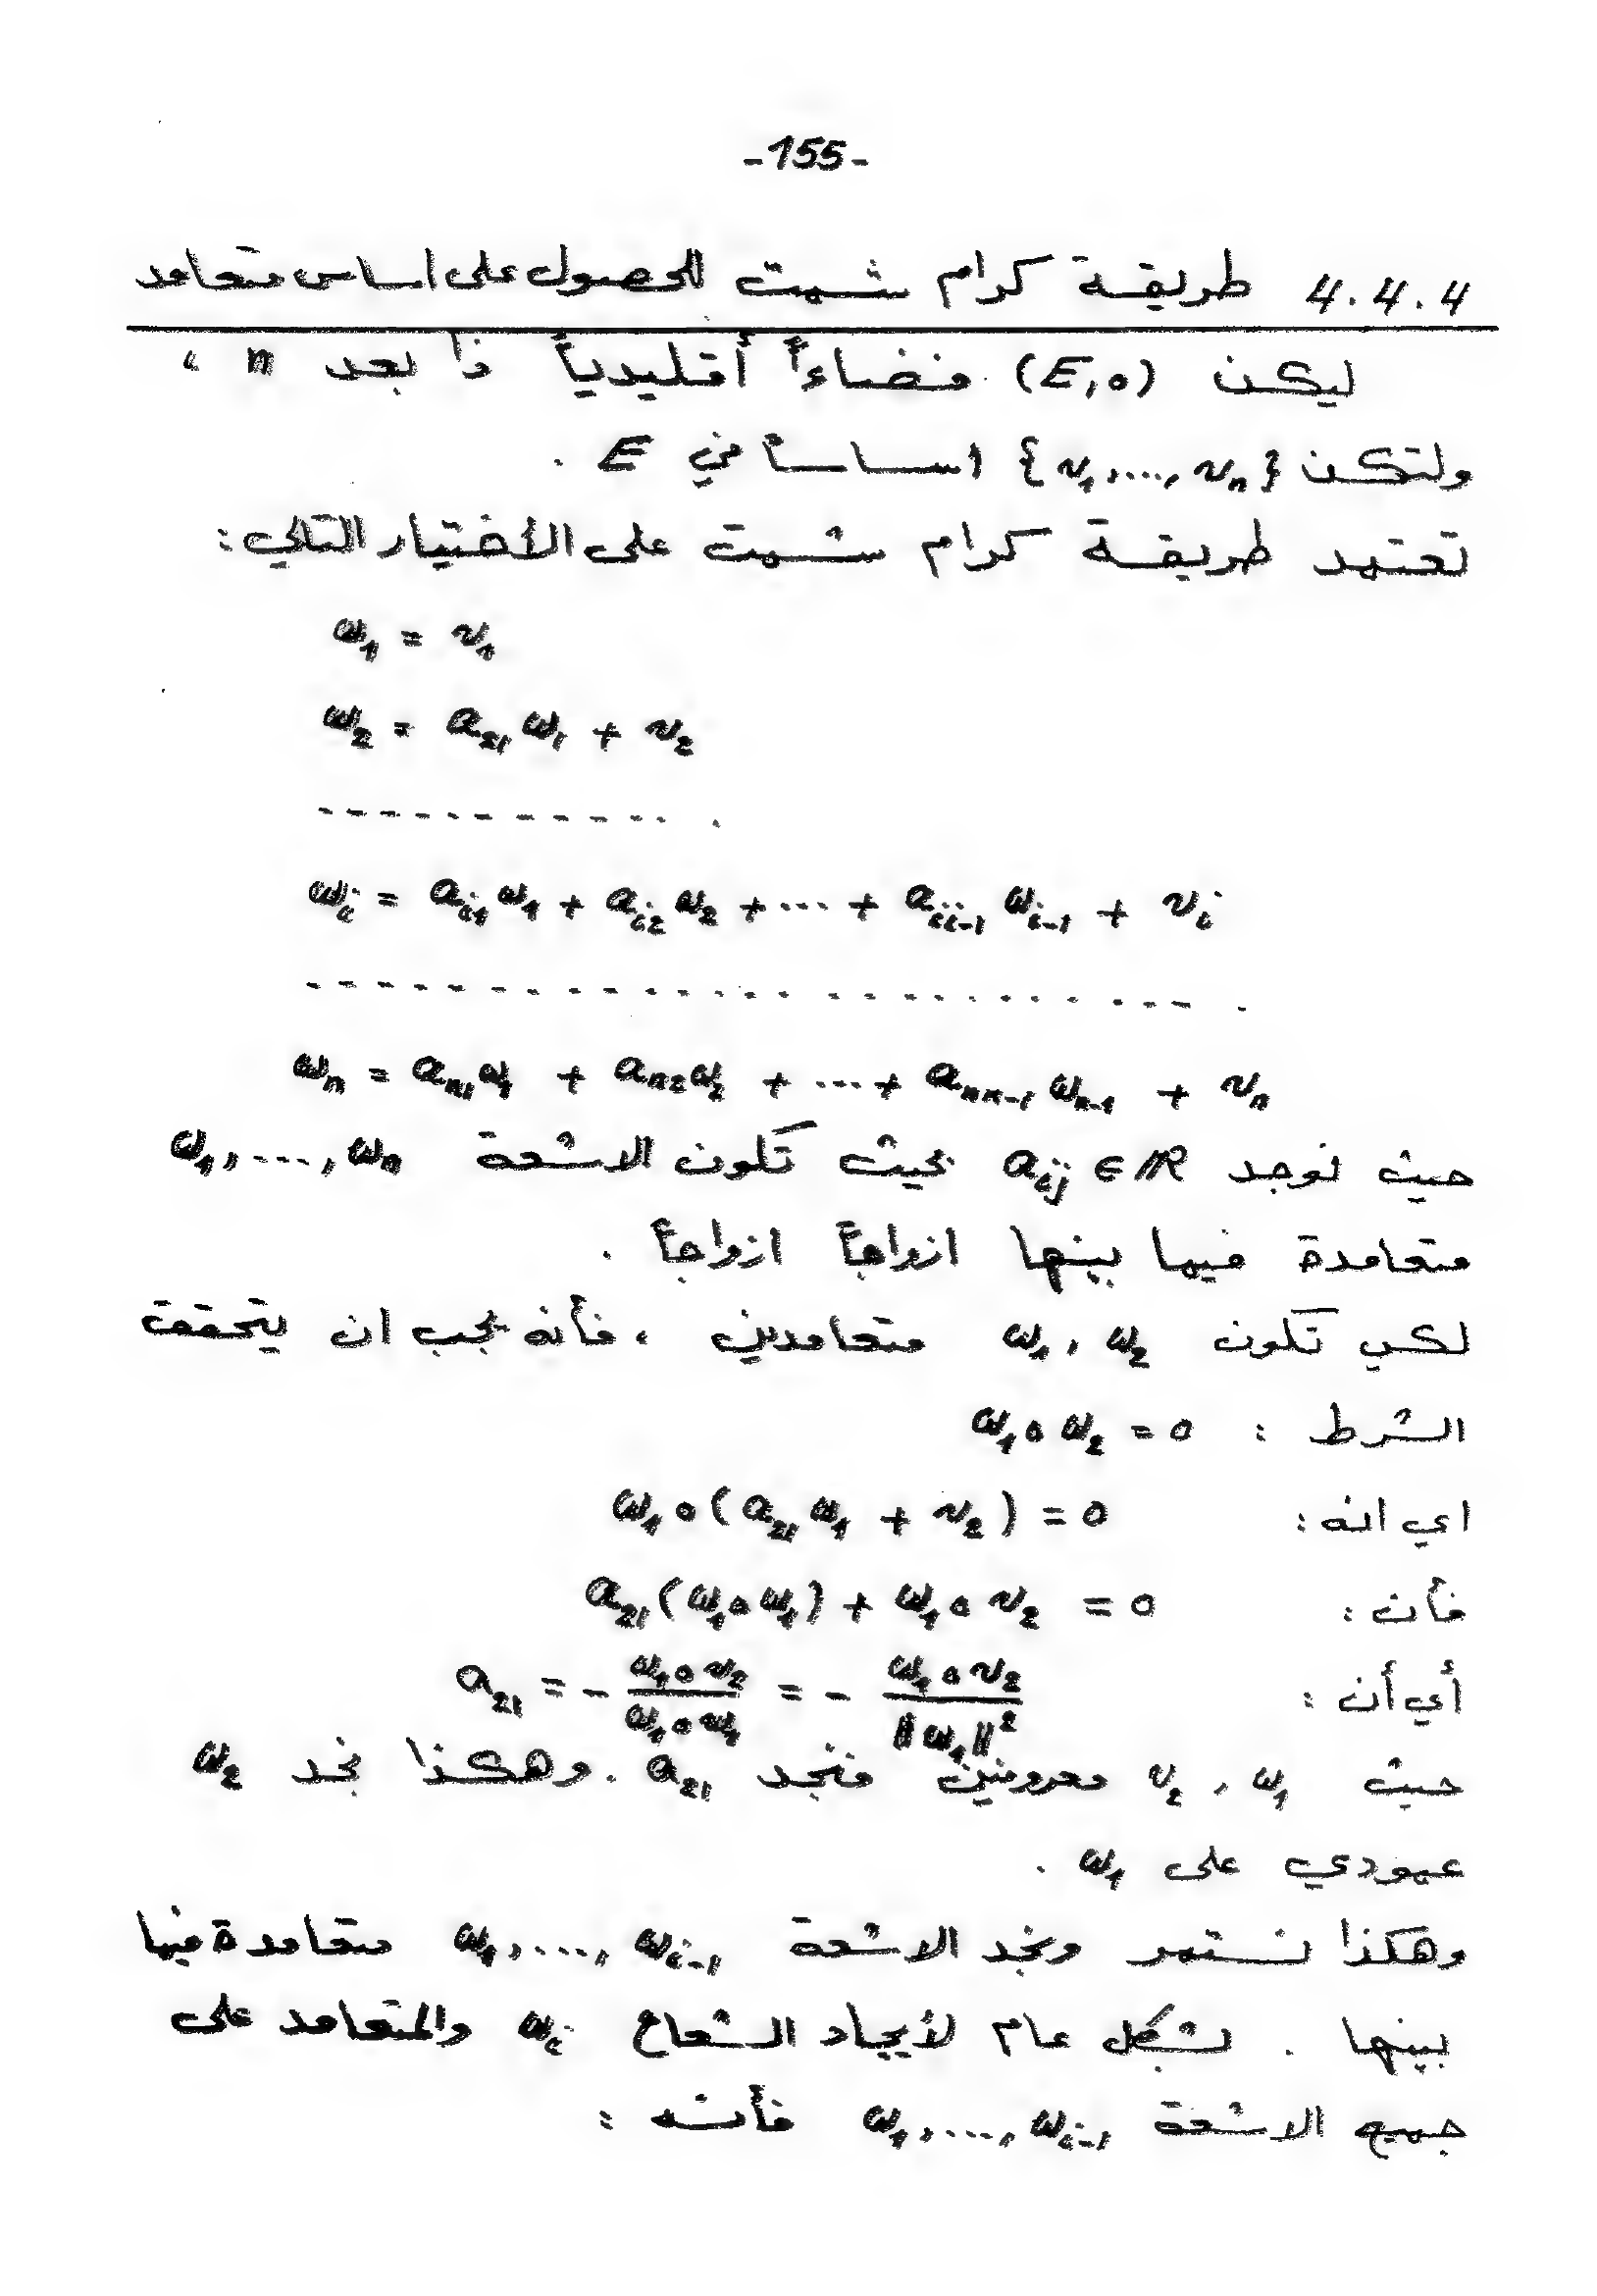 -155-
4.4.4 طريقة كرام شميت للحصول على اساس متعامد
ليكن (E,o) فضاءاً أقليدياً ذا بعد n ،
ولتكن {v₁,...,vₙ} اساساً في E .
تعتمد طريقة كرام شميت على الأختيار التالي:
ω₁ = v₁
ω₂ = a₂₁ω₁ + v₂
- - - - - - - - - - - - .
ωᵢ = aᵢ₁ω₁ + aᵢ₂ω₂ + ... + aᵢᵢ₋₁ωᵢ₋₁ + vᵢ
- - - - - - - - - - - - - - - - - - - - - - - - .
ωₙ = aₙ₁ω₁ + aₙ₂ω₂ + ... + aₙₙ₋₁ωₙ₋₁ + vₙ
حيث نوجد aᵢⱼ ∈ ℝ بحيث تكون الاشعة ω₁,...,ωₙ
متعامدة فيما بينها ازواجاً ازواجاً .
لكي تكون ω₁, ω₂ متعامدين ، فأنه يجب ان يتحقق
الشرط : ω₁ o ω₂ = 0
اي انه: ω₁ o (a₂₁ω₁ + v₂) = 0
فأن : a₂₁(ω₁ o ω₁) + ω₁ o v₂ = 0
أي أن : a₂₁ = - (ω₁ o v₂)/(ω₁ o ω₁) = - (ω₁ o v₂)/‖ω₁‖²
حيث ω₁ , v₂ معروفين فنجد a₂₁ . وهكذا نجد ω₂
عمودي على ω₁ .
وهكذا نستمر ونجد الاشعة ω₁,...,ωᵢ₋₁ متعامدة فيما
بينها . بشكل عام لأيجاد الشعاع ωᵢ والمتعامد على
جميع الاشعة ω₁,...,ωᵢ₋₁ فأنه :